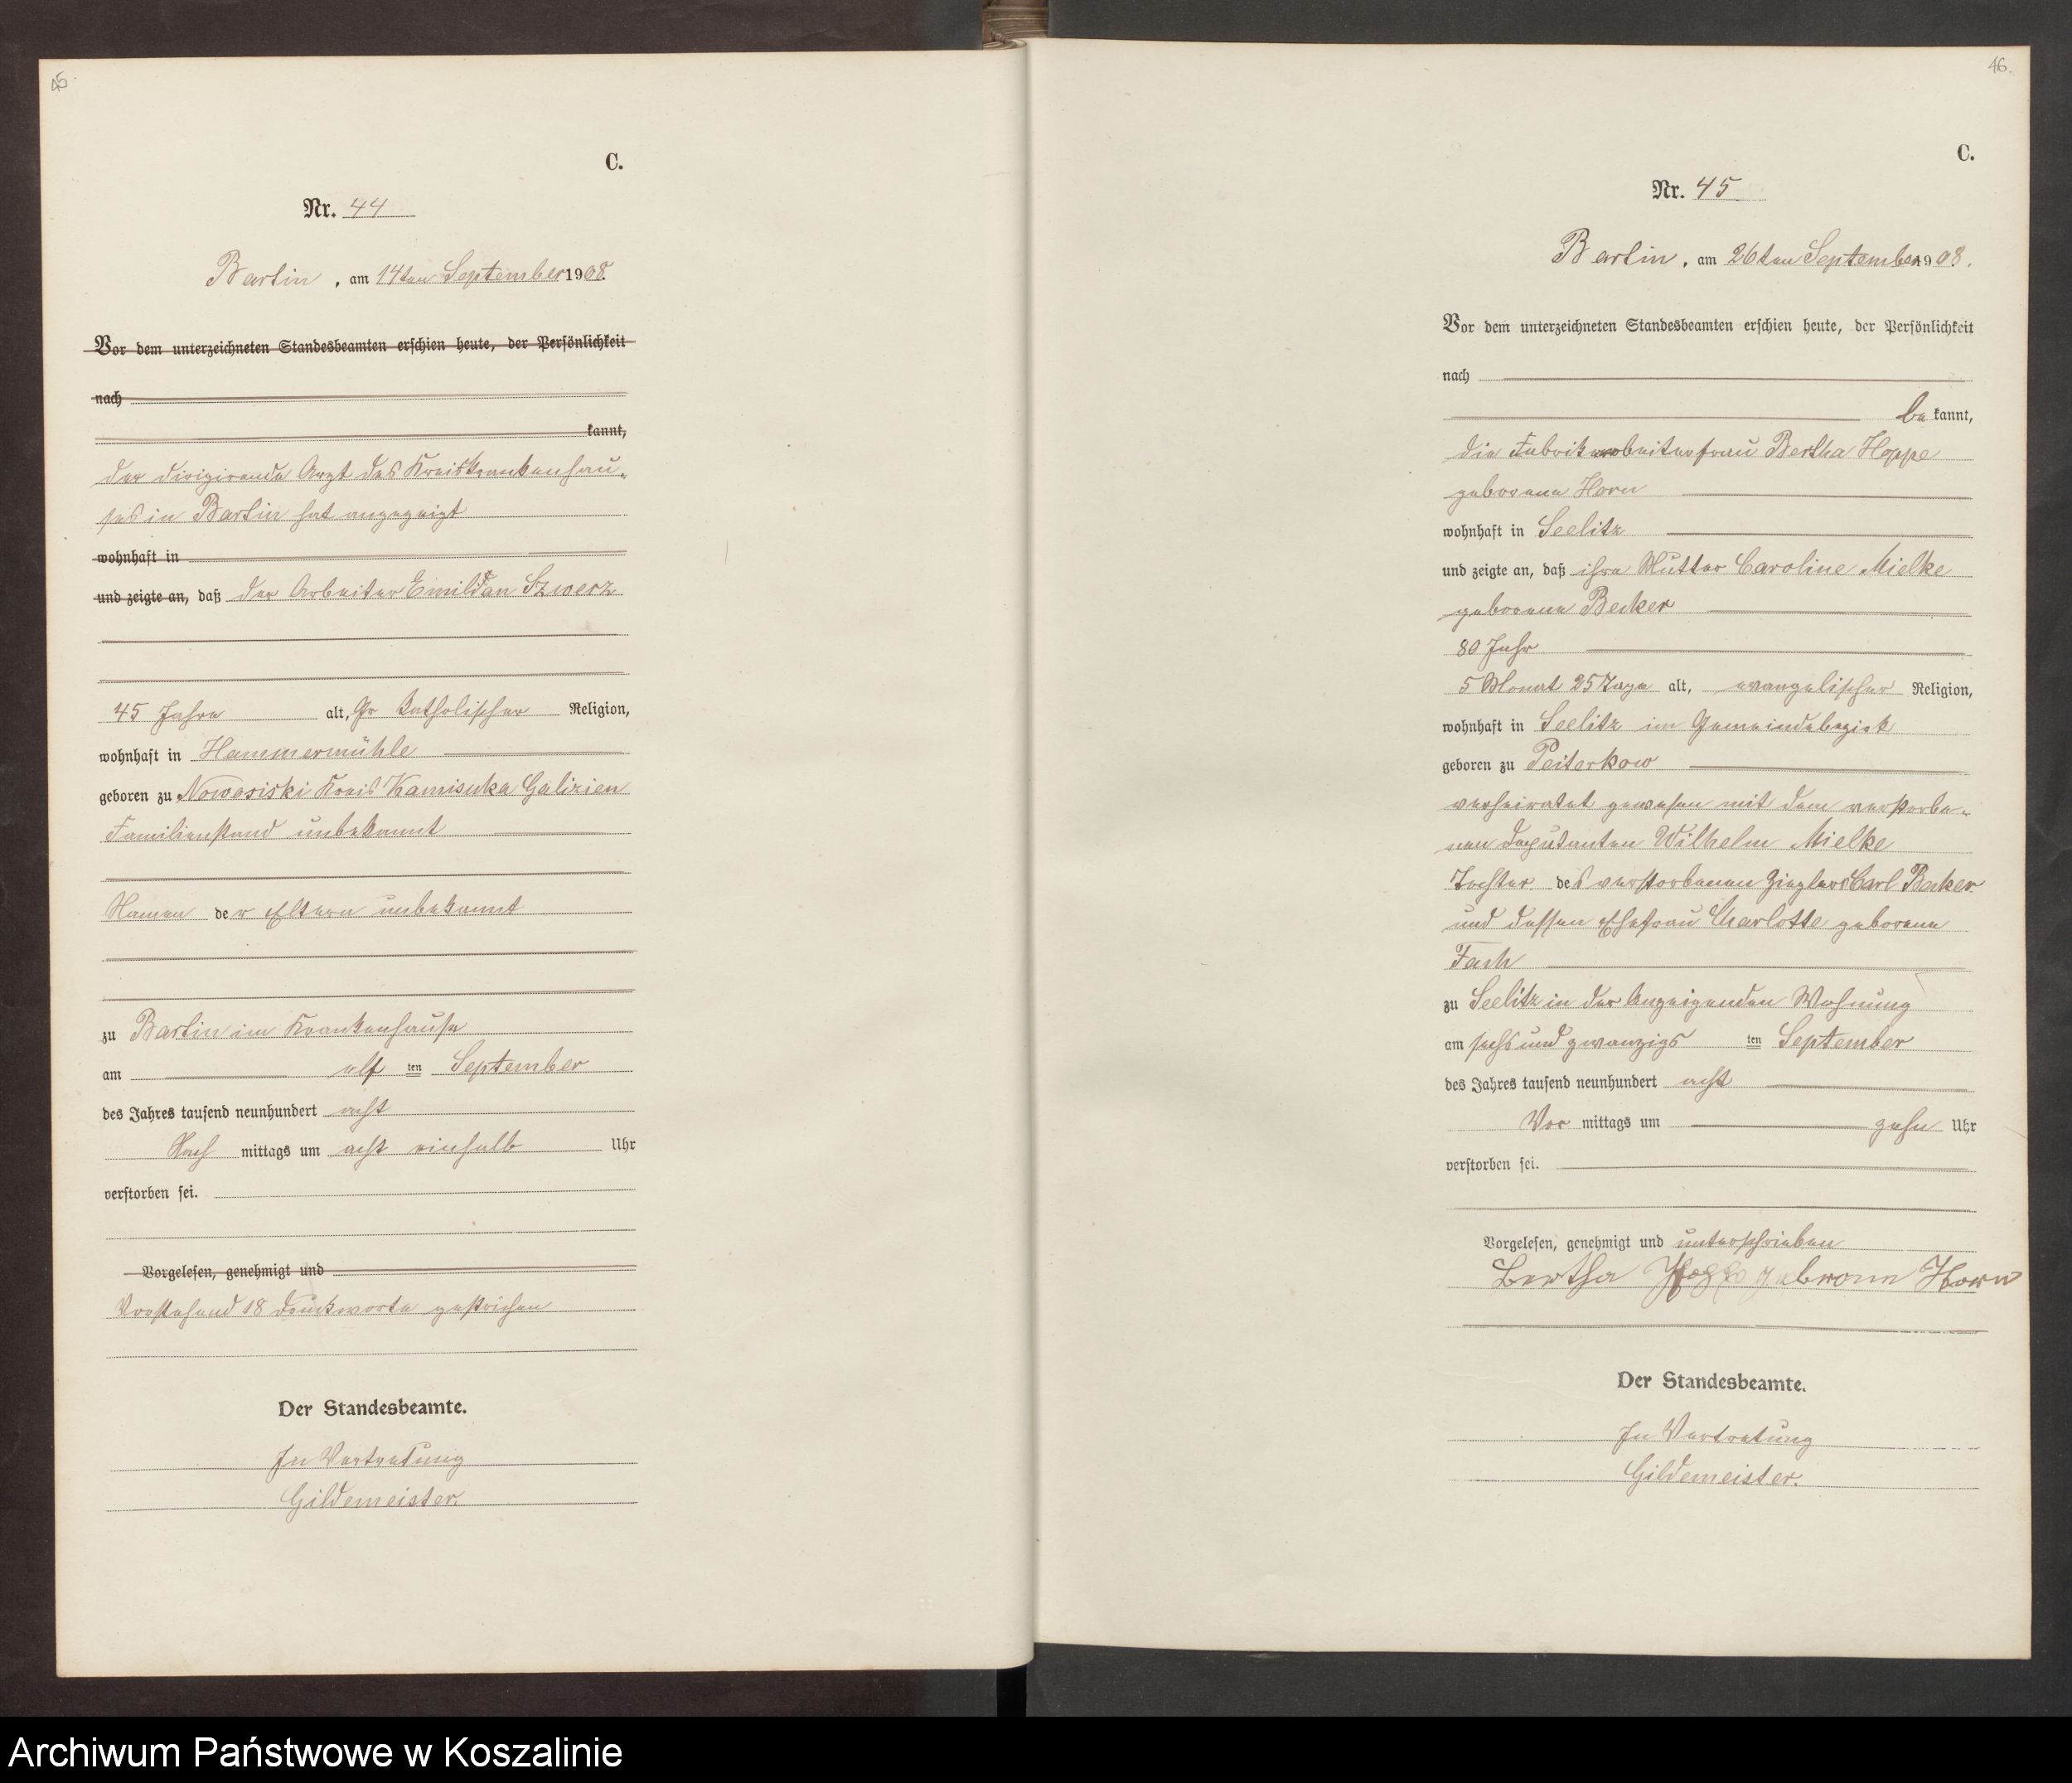 45
C.
Nr. 44
Bartin, am 14ten September 1908.
Vor dem unterzeichneten Standesbeamten erschien heute, der Persönlichkeit
nach
kannt,
der dirigirende Arzt des Kreiskrankenhau-
ses in Bartin hat angezeigt
wohnhaft in
und zeigte an, daß der Arbeiter Emil Szwerz
45 Jahre alt, Gr katholischer Religion,
wohnhaft in Hammermühle
geboren zu Nowosiski Kreis Kamisuka Galizien
Familienstand unbekannt
Namen der Eltern unbekannt
zu Bartin im Krankenhause
am elf ten September
des Jahres tausend neunhundert acht
Nach mittags um acht einhalb Uhr
verstorben sei.
Vorgelesen, genehmigt und
Vorstehend 18 Druckworte gestrichen
Der Standesbeamte.
In Vertretung
Gildemeister.
46.
C.
Nr. 45
Bartin, am 26ten September 1908.
Vor dem unterzeichneten Standesbeamten erschien heute, der Persönlichkeit
nach
be kannt,
die Fabrikarbeiterfrau Bertha Hoppe
geborene Horn
wohnhaft in Seelitz
und zeigte an, daß ihre Mutter Caroline Mielke
geborene Becker
80 Jahr
5 Monat 25 Tage alt, evangelischer Religion,
wohnhaft in Seelitz im Gemeindebezirk
geboren zu Peiterkow
verheiratet gewesen mit dem verstorbe-
nen Wilhelm Mielke
Tochter des verstorbenen Zieglers Carl Becker
und dessen Ehefrau Charlotte geborene
Fash
zu Seelitz in der Anzeigenden Wohnung
am sechs und zwanzigs ten September
des Jahres tausend neunhundert acht
Vor mittags um zehn Uhr
verstorben sei.
Vorgelesen, genehmigt und unterschrieben
Bertha Hoppe Horn
Der Standesbeamte.
In Vertretung
Gildemeister.
Archiwum Państwowe w Koszalinie